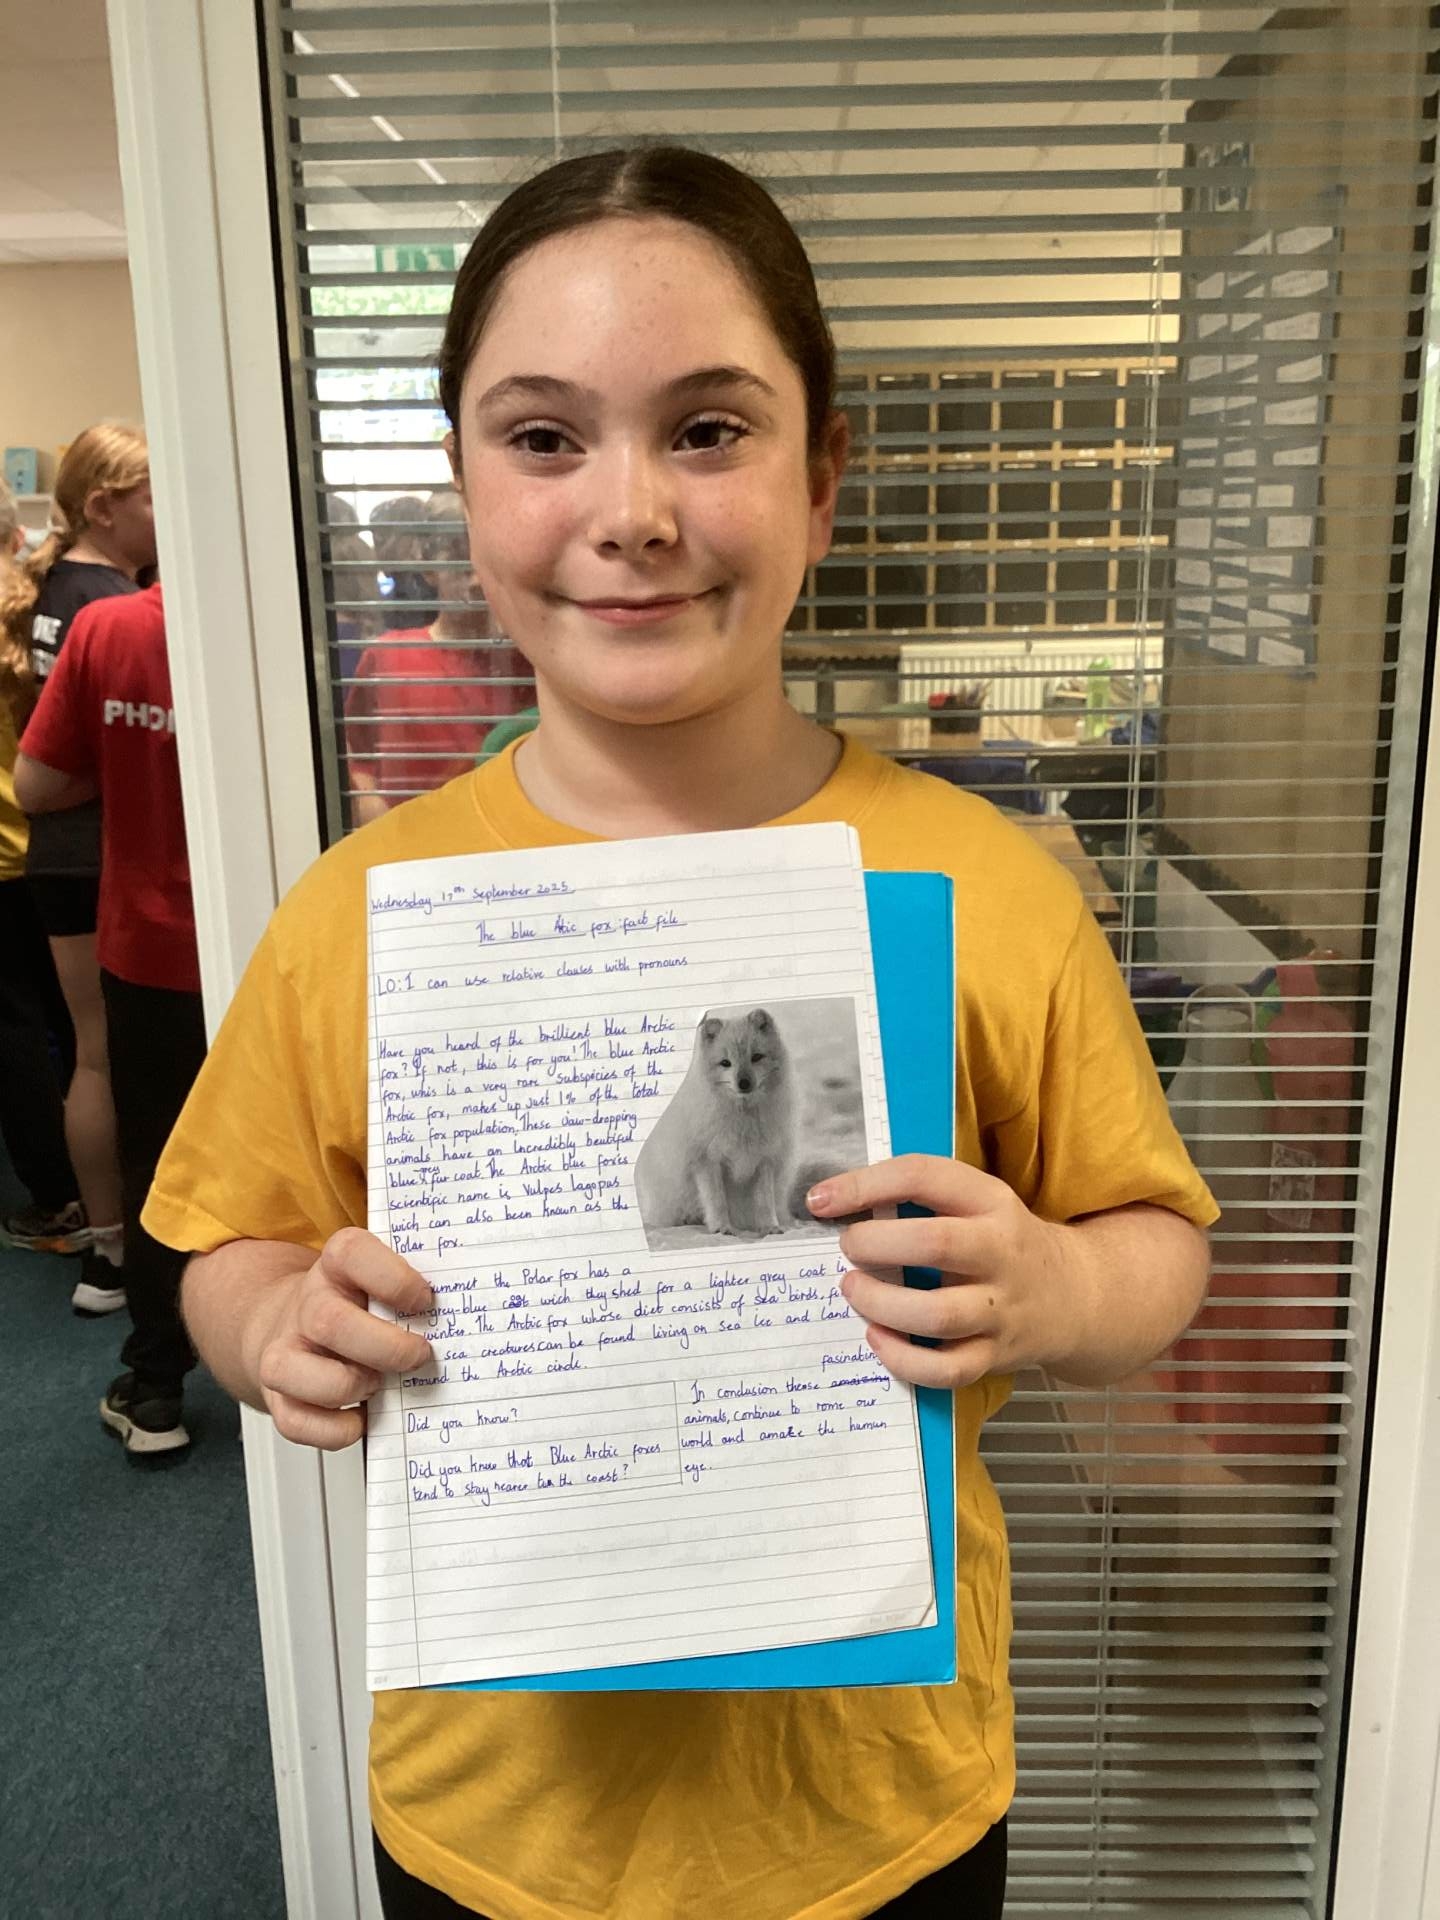 Wednesday 17th September 2025.
The blue Actic fox: fact file
LO: I can use relative clauses with pronouns
Have you heard of the brillient blue Arctic
fox? If not, this is for you! The blue Arctic
fox, whis is a very rare subspicies of the
Arctic fox, makes up just 1% of the total
Arctic fox population. These jaw-dropping
animals have an incredibly beutiful
grey
blue fur coat. The Arctic blue foxes
scientific name is Vulpes lagopus
wich can also been known as the
Polar fox.
summer the Polar fox has a
grey-blue wich they shed for a lighter grey coat in
winter. The Arctic fox whose diet consists of sea birds,
sea creatures can be found living on sea ice and land
around the Arctic circle.
Did you know?
Did you know that Blue Arctic foxes
tend to stay nearer the coast?
fasinating
In conclusion these amaizing
animals, continue to rome our
world and amake the human
eye.
PHO